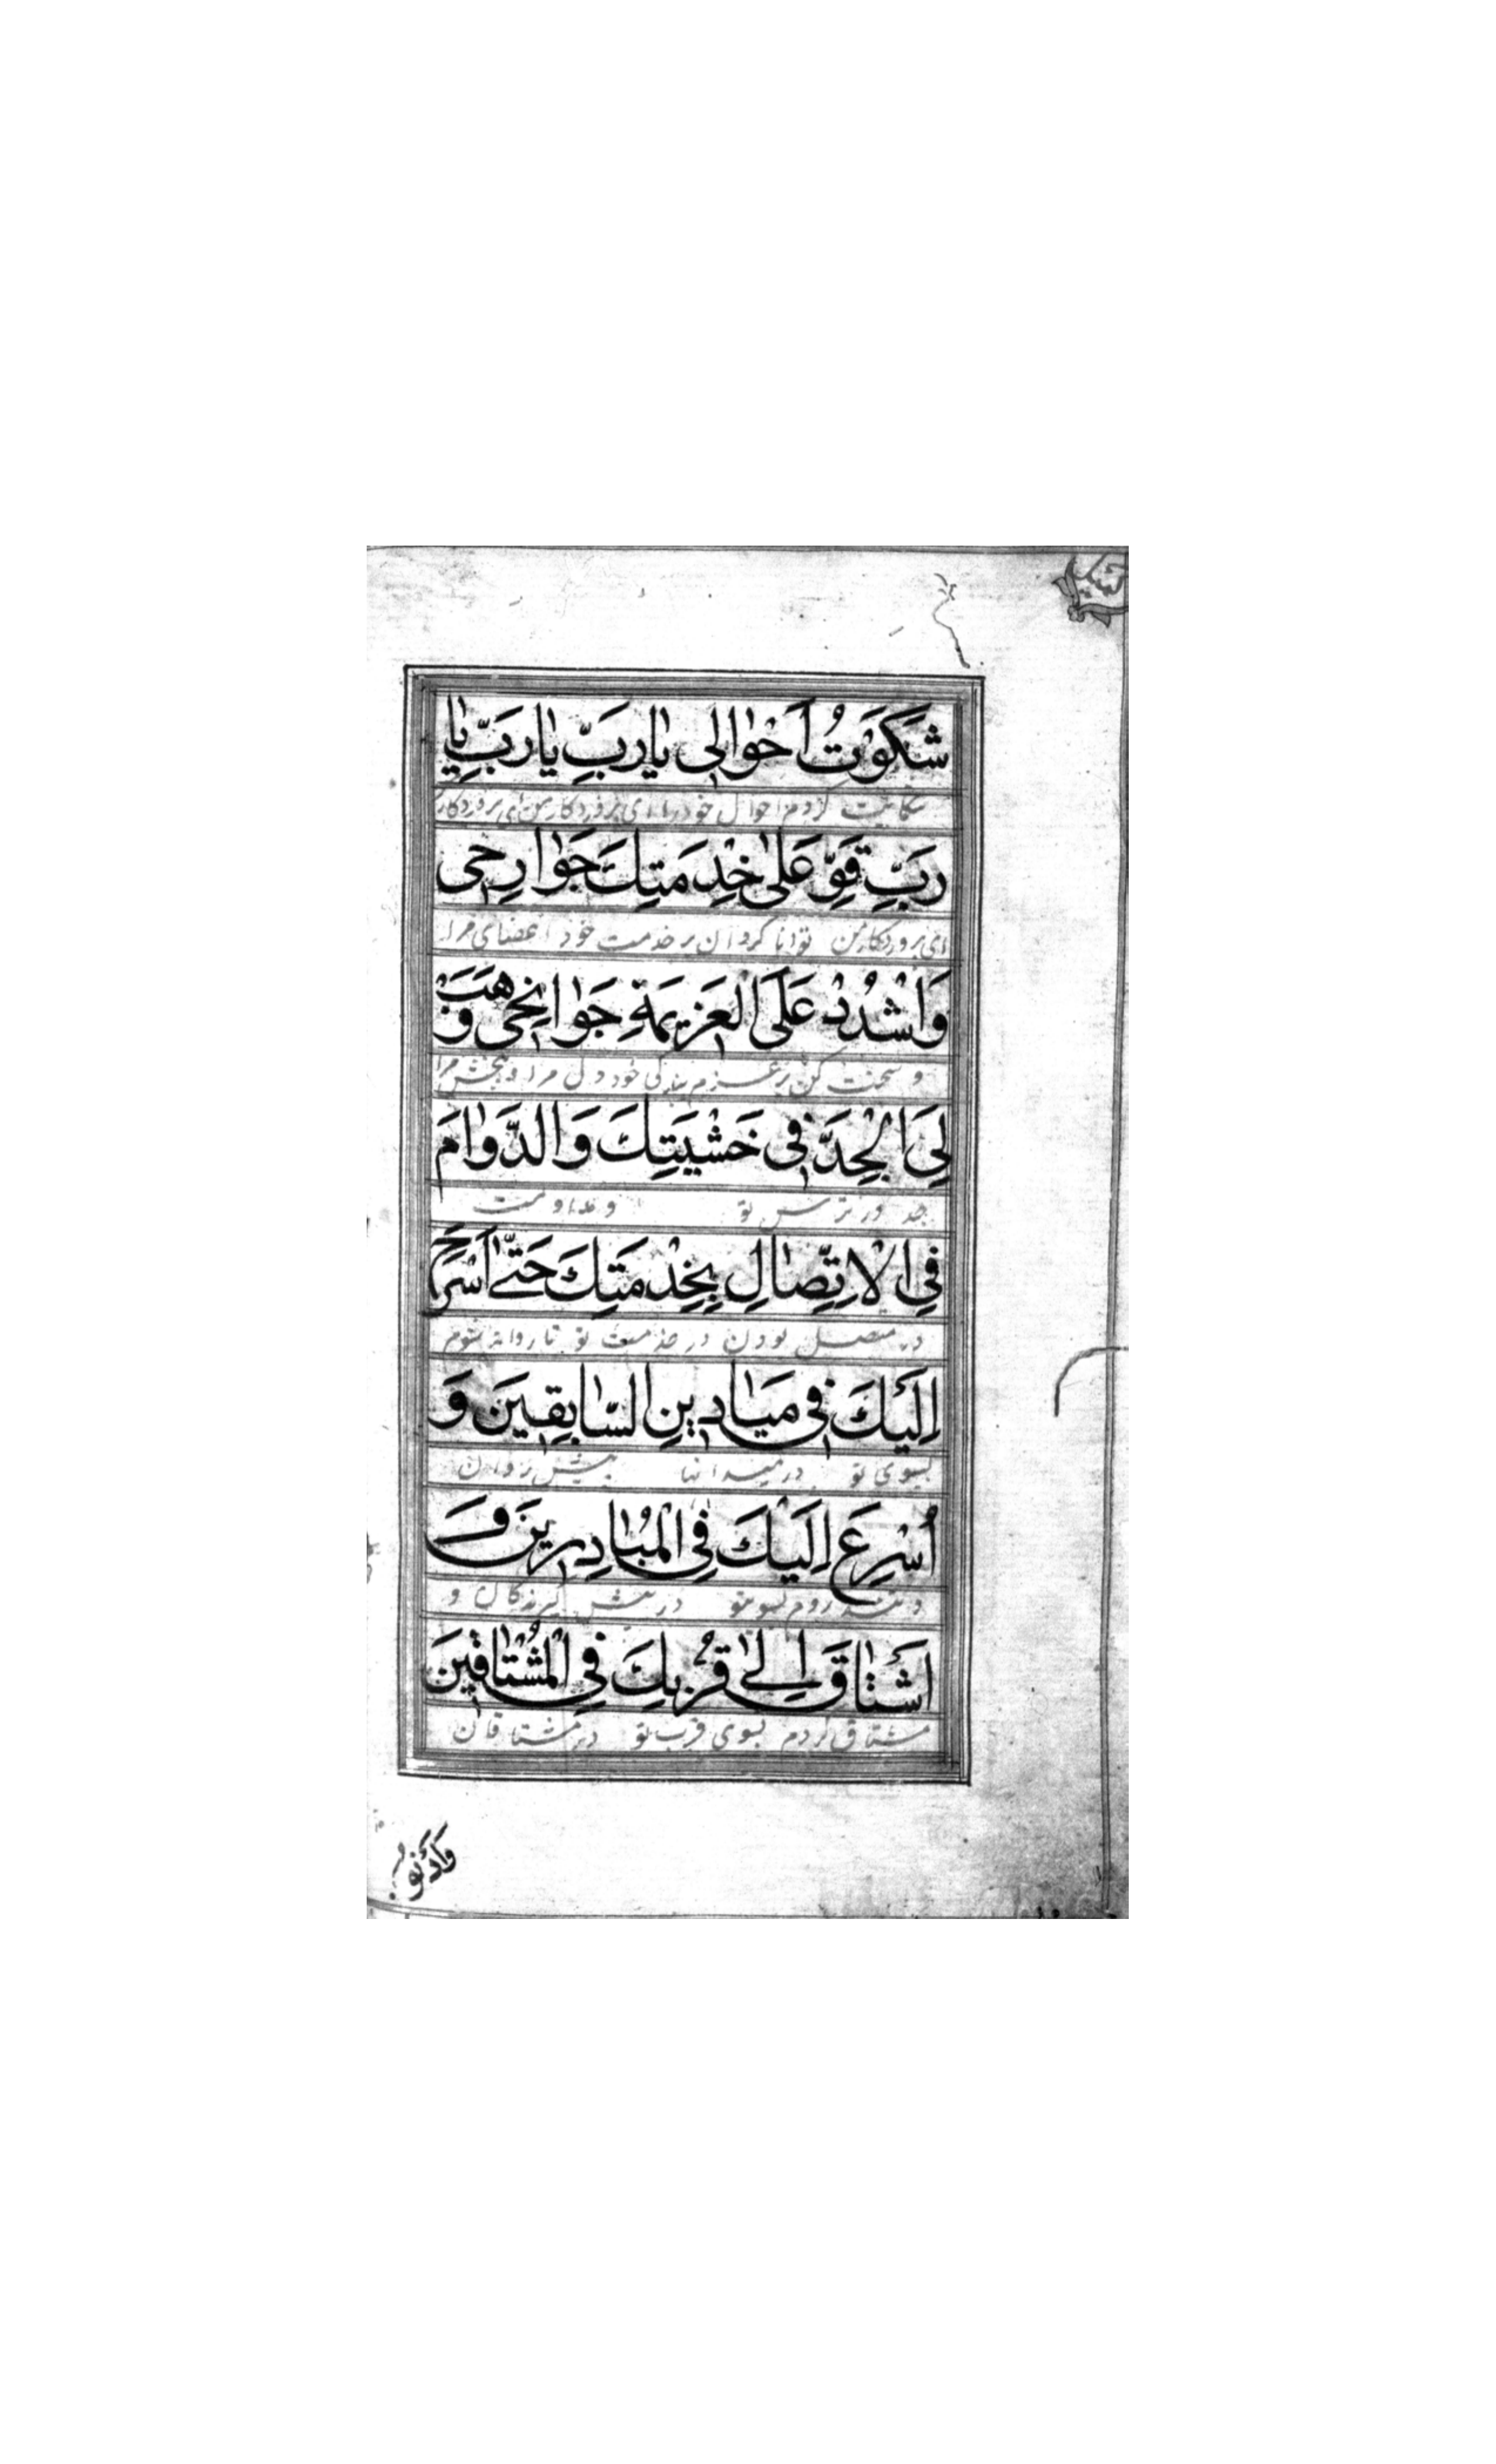 شَكَوْتُ اَحْوٰالى يٰارَبِّ يٰارَبِّ يٰا
شكايت كردم احوال خود را اى پروردكار من اى پروردكار
رَبِّ قَوِّ عَلىٰ خِدْمَتِكَ جَوٰارِحى
اى پروردكار من توانا كردان بر خدمت خود اعضاى مرا
وَاشْدُدْ عَلَى الْعَزيمَةِ جَوٰانِحى وَهَبْ
و سخت كن بر عزم بندكى خود دل مرا و ببخش مرا
لِىَ الْجِدَّ فى خَشْيَتِكَ وَالدَّوٰامَ
جد در ترس تو و مداومت
فِى الْاِتِّصٰالِ بِخِدْمَتِكَ حَتّىٰ اَسْرَحَ
در متصل بودن در خدمت تو تا روانه شوم
اِلَيْكَ فى مَيٰادينِ السّٰابِقينَ وَ
بسوى تو در ميدانها پيش روان
اُسْرِعَ اِلَيْكَ فِى الْمُبٰادِرينَ وَ
و تند روم بسوى تو در پيش كيرندكان و
اَشْتٰاقَ اِلىٰ قُرْبِكَ فِى الْمُشْتٰاقينَ
مشتاق كردم بسوى قرب تو در مشتاقان
وَاَدْنُوَ